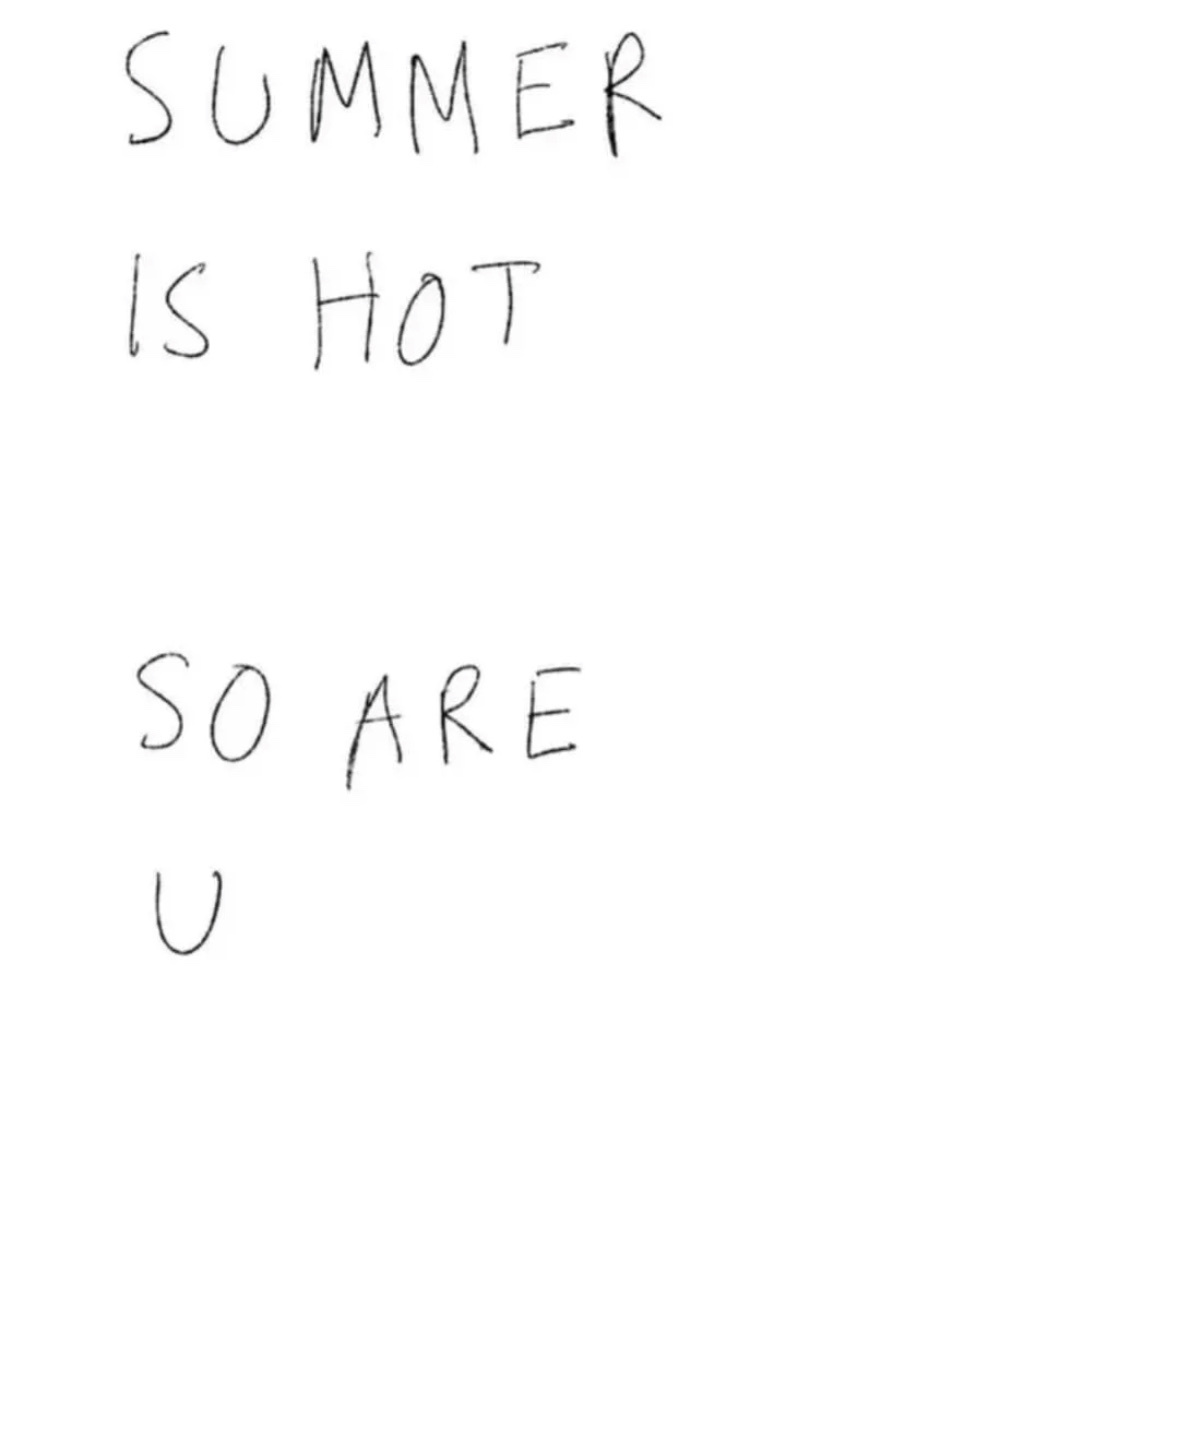 SUMMER
IS HOT
SO ARE
U